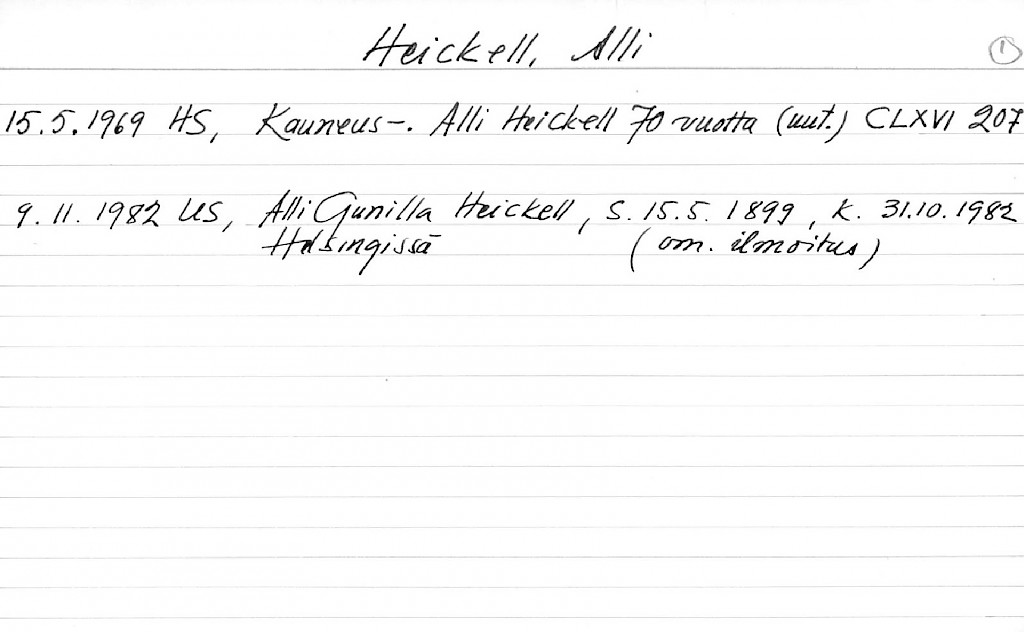 Heickell, Alli
1
15.5.1969 HS, Kauneus-. Alli Heickell 70 vuotta (uut.) CLXVI 207
9.11.1982 US, Alli Gunilla Heickell, s. 15.5.1899, k. 31.10.1982
Helsingissä (om. ilmoitus)